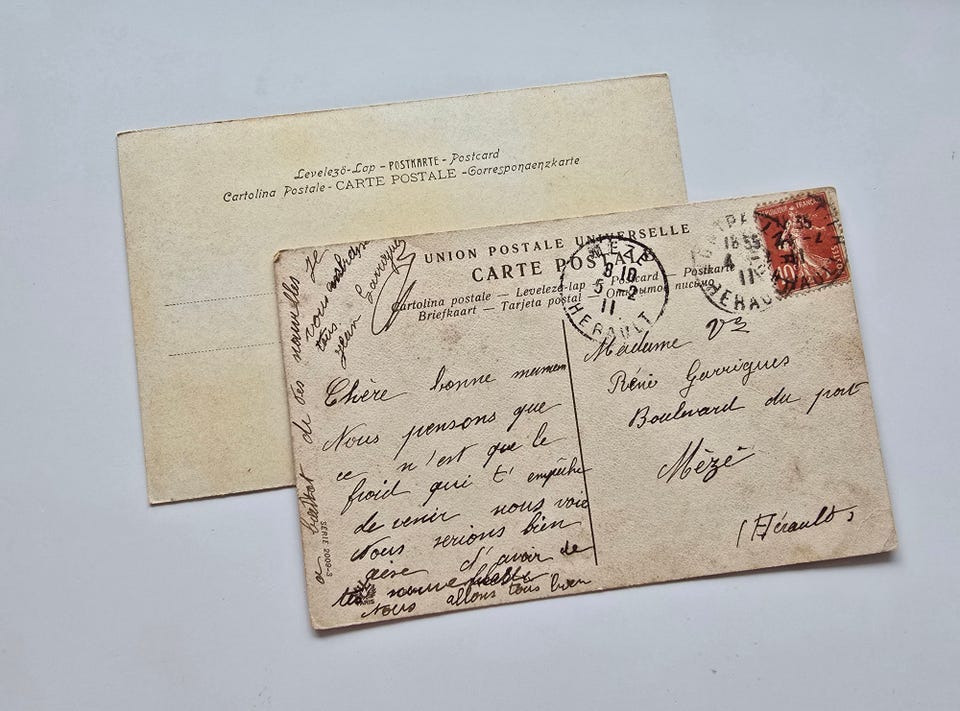 Levelező-Lap - POSTKARTE - Postcard
Cartolina Postale - CARTE POSTALE - Correspondenzkarte
UNION POSTALE UNIVERSELLE
CARTE POSTALE
Cartolina postale — Levelező-lap — Postcard — Postkarte
Briefkaart — Tarjeta postal — Открытое письмо
MÈZE
8 10
5 -2
11
HÉRAULT
18 55
4
11
HÉRAULT
10
Madame Vve
René Garrigues
Boulevard du port
Mèzè
(Hérault)
Chère bonne maman
Nous pensons que
ce n'est que le
froid qui t'empêche
de venir nous voir
Nous serions bien
aise d'avoir de
tes nouvelles
Nous allons tous bien
a bientot de tes nouvelles Je
vous embrasse
tous
Jean Garrigues
SERIE 2009-3
PARIS